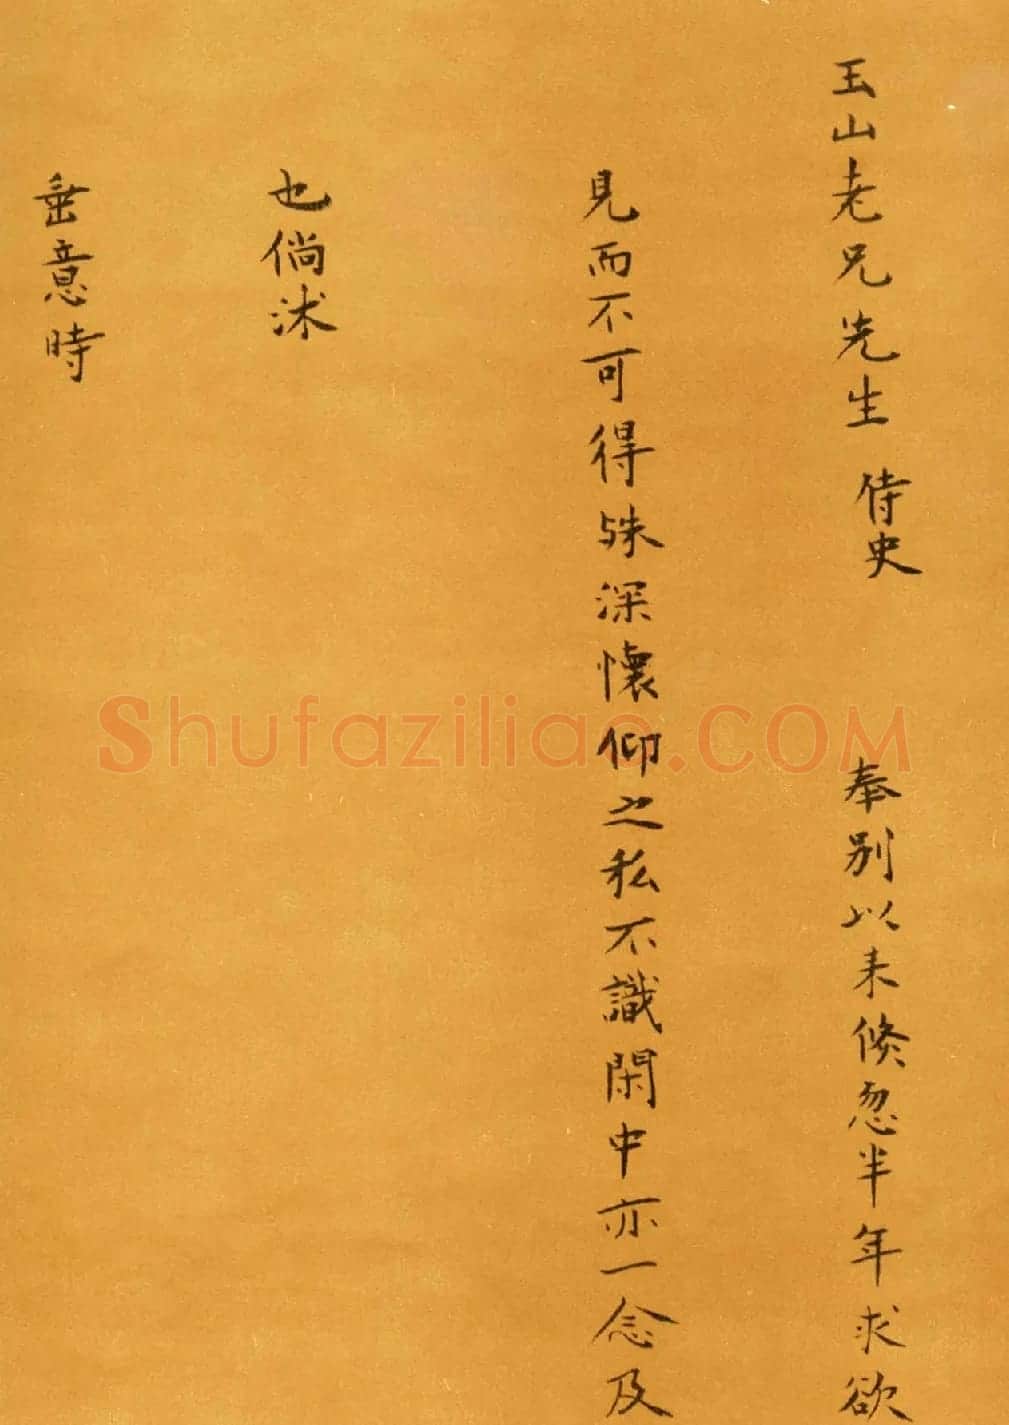 玉山老兄先生 侍史 奉别以来倏忽半年求欲
見而不可得殊深懷仰之私不識閑中亦一念及
也倘沐
垂意時
Shufaziliao.COM